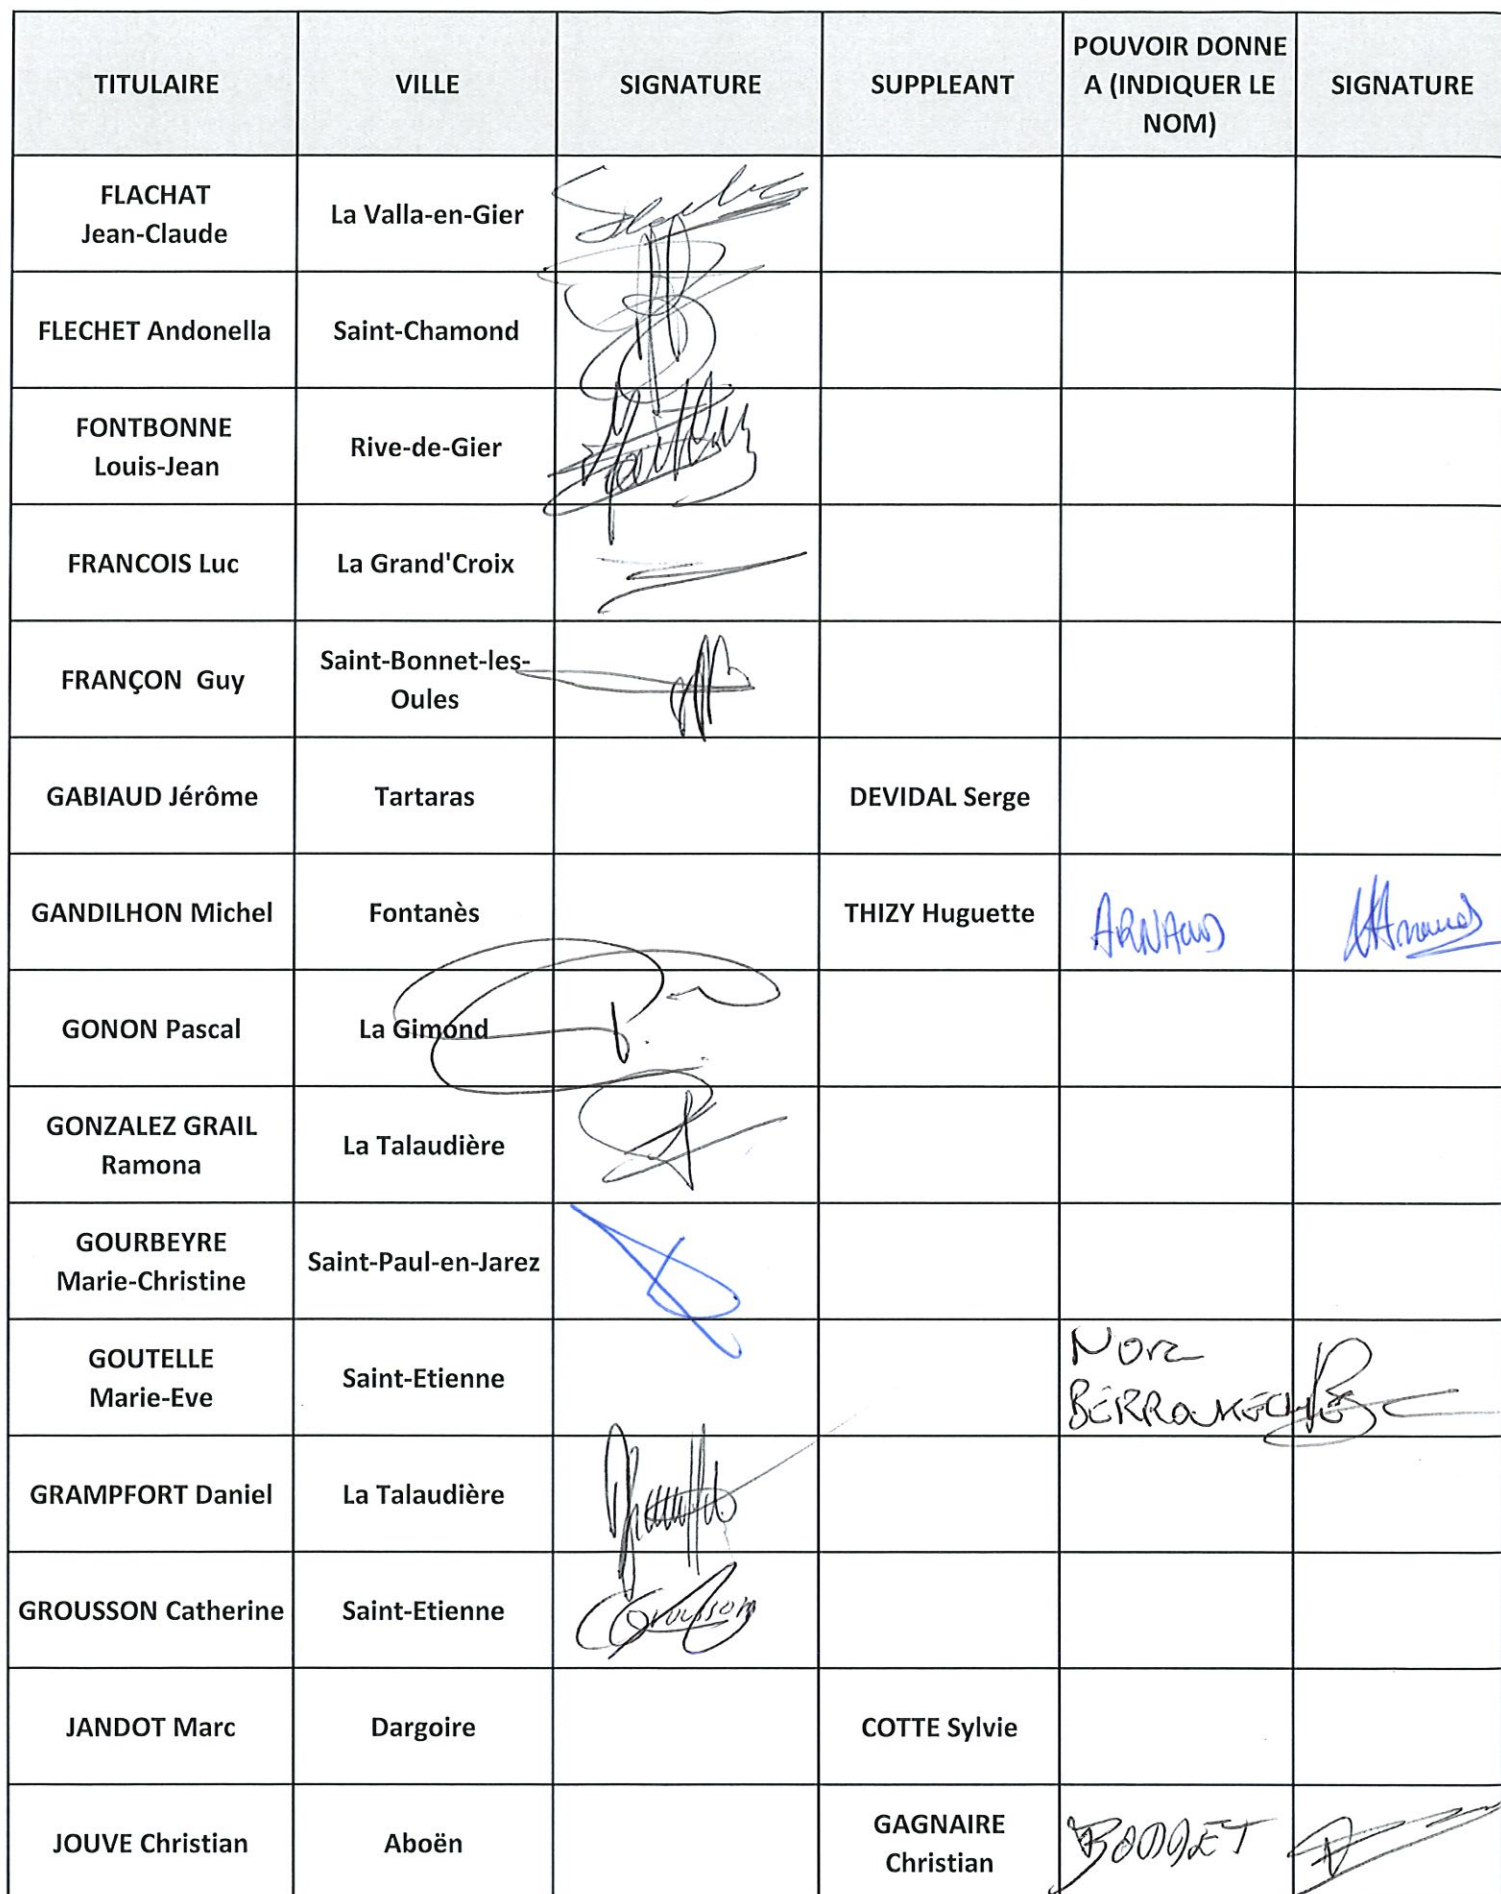 TITULAIRE
VILLE
SIGNATURE
SUPPLEANT
POUVOIR DONNE
A (INDIQUER LE
NOM)
SIGNATURE
FLACHAT
Jean-Claude
La Valla-en-Gier
FLECHET Andonella
Saint-Chamond
FONTBONNE
Louis-Jean
Rive-de-Gier
FRANCOIS Luc
La Grand'Croix
FRANÇON Guy
Saint-Bonnet-les-
Oules
GABIAUD Jérôme
Tartaras
DEVIDAL Serge
GANDILHON Michel
Fontanès
THIZY Huguette
ARNAUD
GONON Pascal
La Gimond
GONZALEZ GRAIL
Ramona
La Talaudière
GOURBEYRE
Marie-Christine
Saint-Paul-en-Jarez
GOUTELLE
Marie-Eve
Saint-Etienne
Nora
GRAMPFORT Daniel
La Talaudière
GROUSSON Catherine
Saint-Etienne
Grousson
JANDOT Marc
Dargoire
COTTE Sylvie
JOUVE Christian
Aboën
GAGNAIRE
Christian